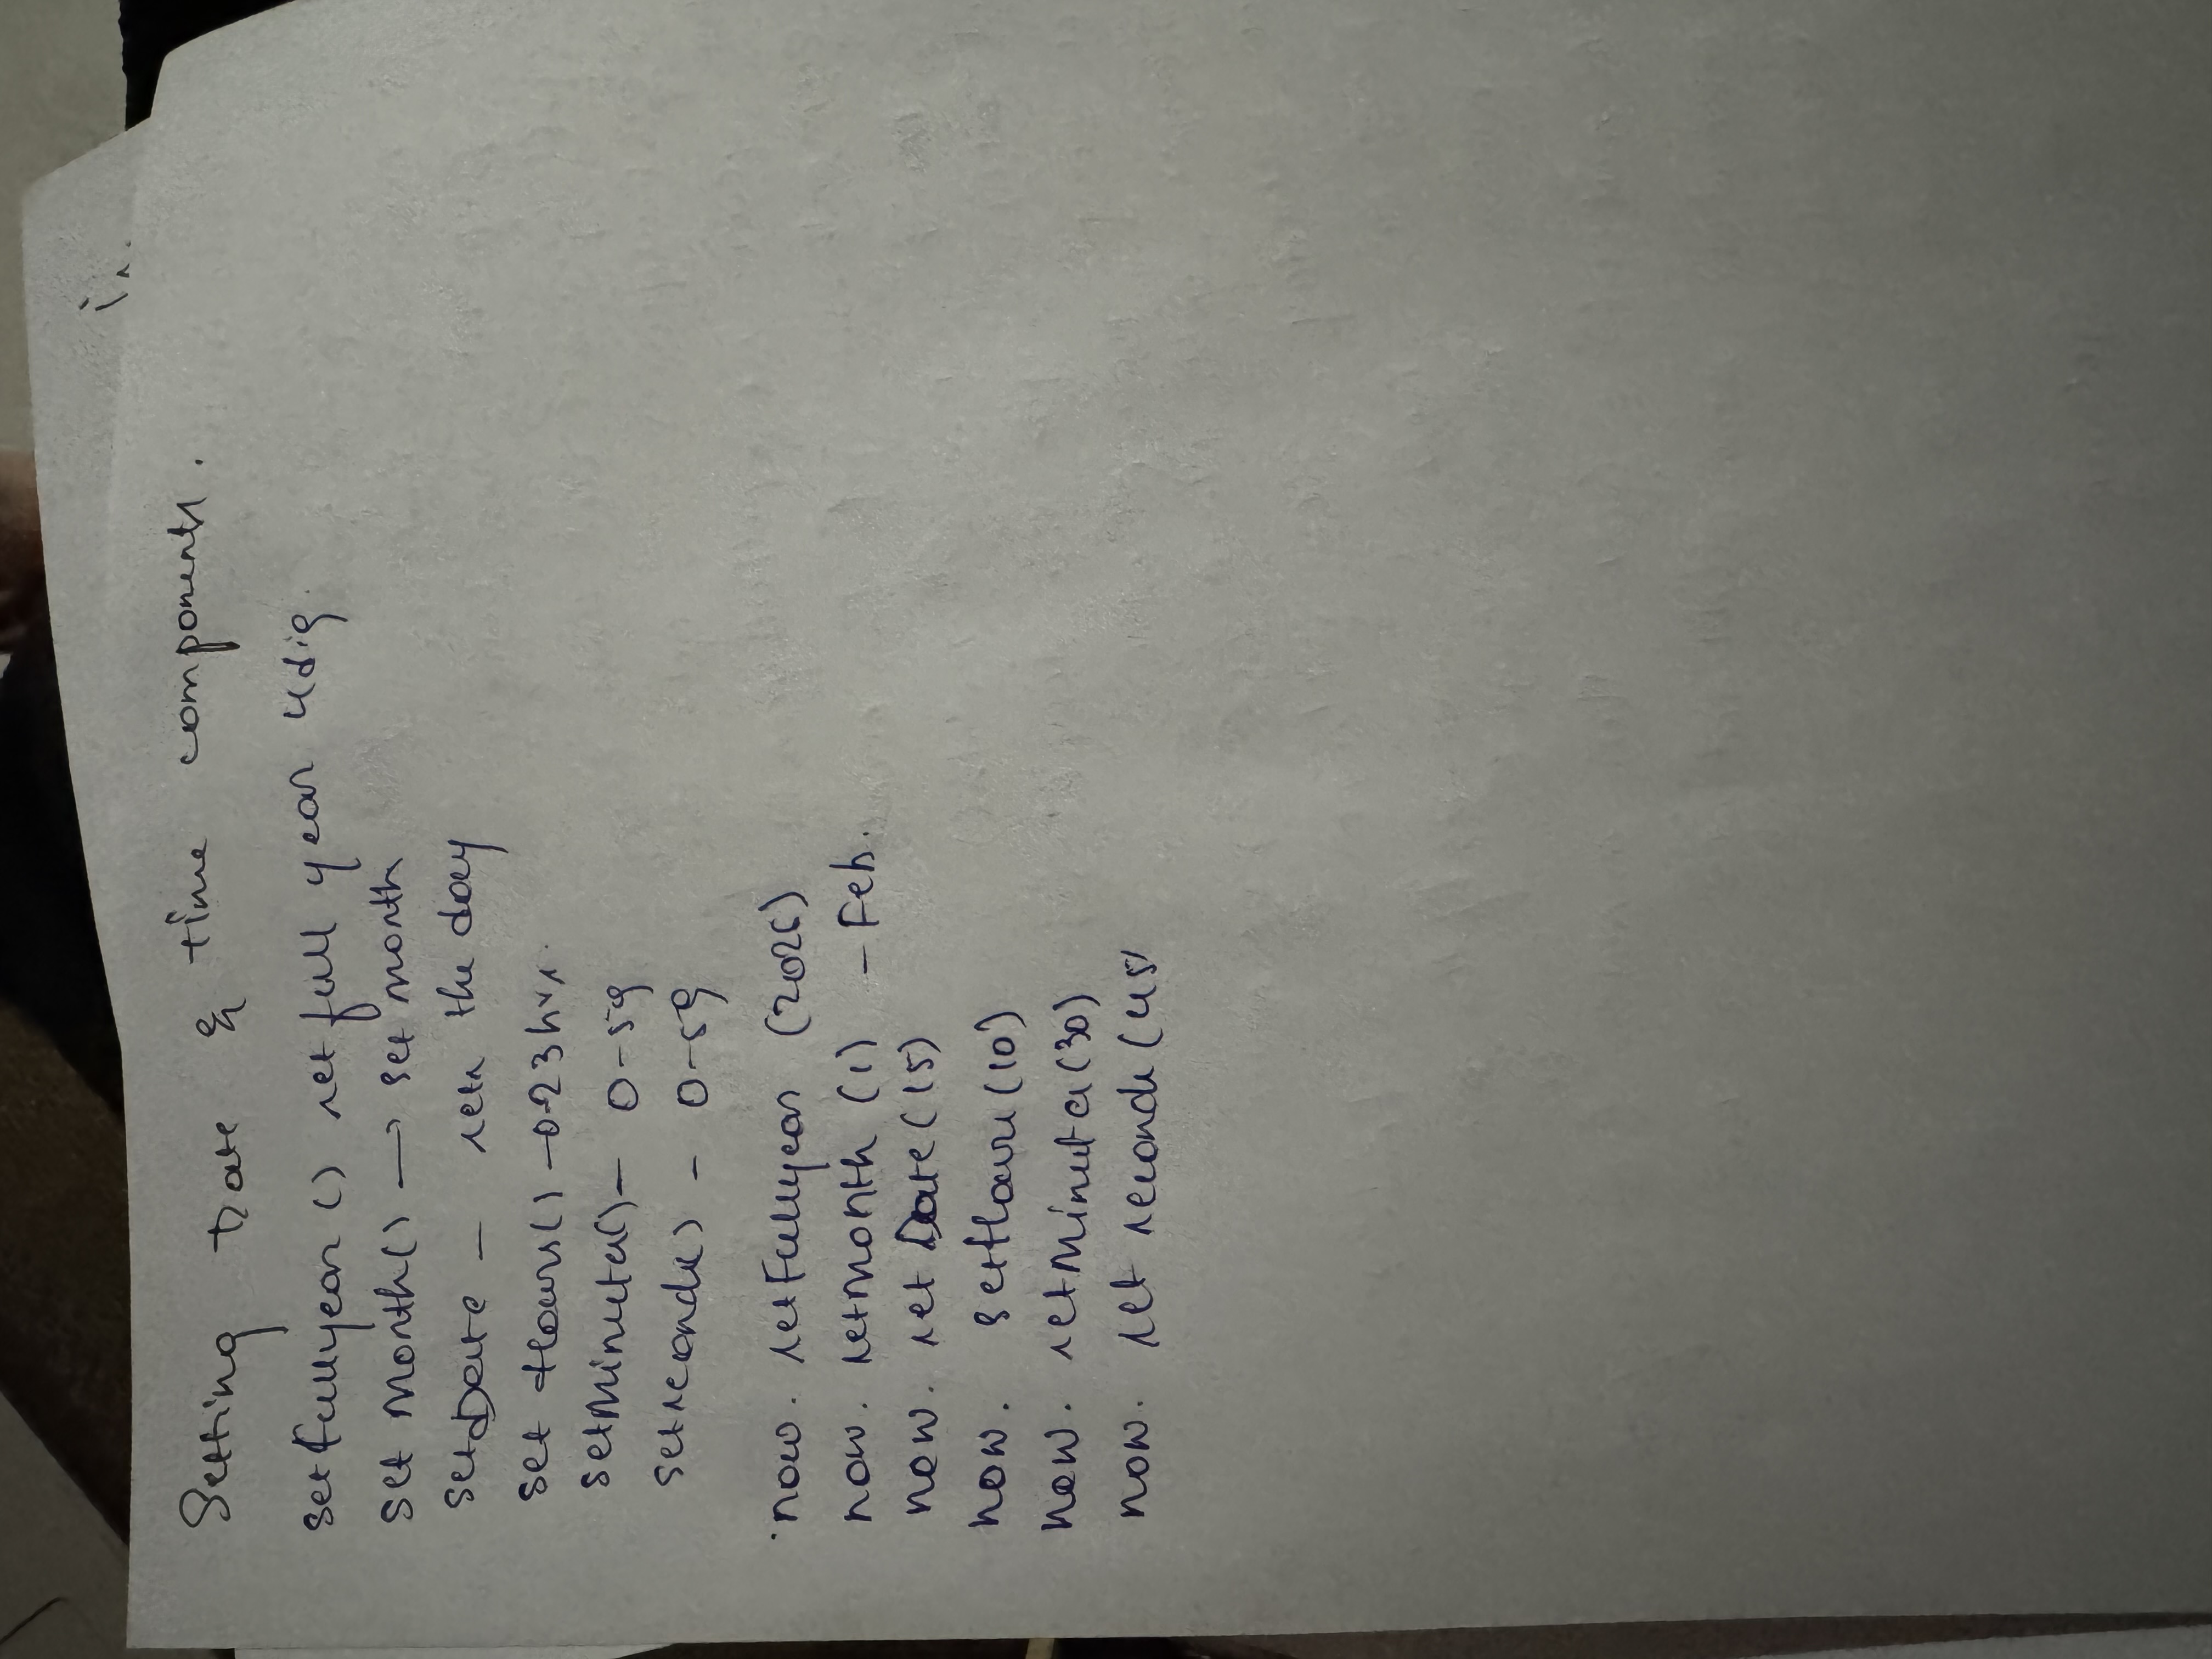 is.
Setting Date & time components.
setFullyear () set full year 4dig.
set Month() → set month
setDate - sets the day
set Hours() - 0-23hrs.
setMinutes() - 0-59
setseconds) - 0-59
now. setFullyear (2026)
now. setmonth (1) - Feb.
now. set Date (15)
now. setHours (10)
now. setMinutes (30)
now. set seconds (45)